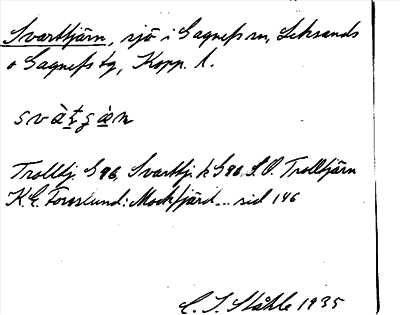 Svarttjärn, sjö i Gagnefs sn, Leksands
o Gagnefs tg, Kopp. l.
svàt̠ʂà̠n
Trolltj. G96, Svarttj. k G96. S.O. Trolltjärn
K.E. Forsslund: Mockfjärd... sid 146
C. I. Ståhle 1935